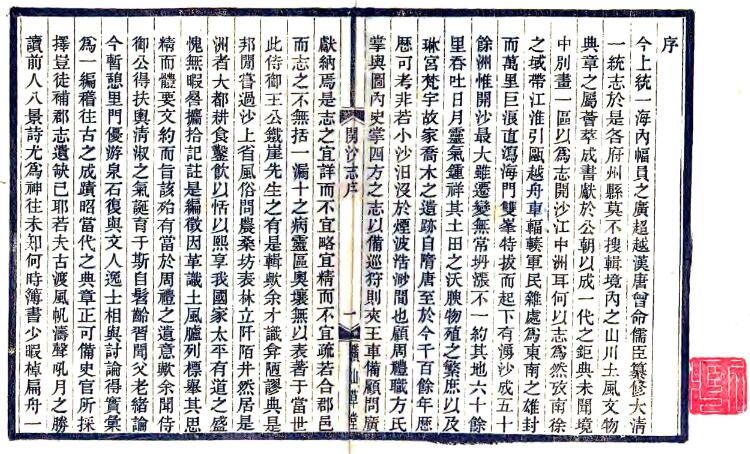 序
今上統一海內幅員之廣超越漢唐曾命儒臣纂修大清
一統志於是各府州縣莫不搜輯境內之山川土風文物
典章之屬薈萃成書獻於公朝以成一代之鉅典未聞境
中別畫一區以為志開沙江中洲耳何以志為然茲南徐
之域帶江淮引甌越舟車輻輳軍民雜處為東南之雄封
而萬里巨浪直瀉海門雙峯特拔而起下有湧沙成五十
餘洲惟開沙最大雖遷變無常坍漲不一約其地六十餘
里呑吐日月靈氣鍾祥其土田之沃腴物殖之繁庶以及
琳宮梵宇故家喬木之遺跡自隋唐至於今千百餘年歷
歷可考非若小沙汨沒於煙波浩渺間也顧周禮職方氏
掌輿圖內史掌四方之志以備巡狩則夾王車備顧問廣
開沙志序
一
橫山草堂
獻納焉是志之宜詳而不宜略宜精而不宜疏若合郡邑
而志之不無括一漏十之病靈區奧壤無以表著于當世
此侍御王公鐵崖先生之有是輯歟余才識弇陋謬典是
邦閒嘗過沙上省風俗問農桑坊表林立阡陌井然居是
洲者大都耕食鑿飲以恬以熙享我國家太平有道之盛
愧無暇晷攟拾記註是編徵因革識土風臚列標舉其思
精而體要文約而旨該殆有當於周禮之遺意歟余聞侍
御公得扶輿清淑之氣誕育于斯自髫齡習聞父老緒論
今暫憩里門優游泉石復與文人逸士相與討論得實彙
為一編稽往古之成蹟昭當代之典章正可備史官所採
擇豈徒補郡志遺缺已耶若夫古渡風帆濤聲吼月之勝
讀前人八景詩尤為神往未知何時簿書少暇棹扁舟一